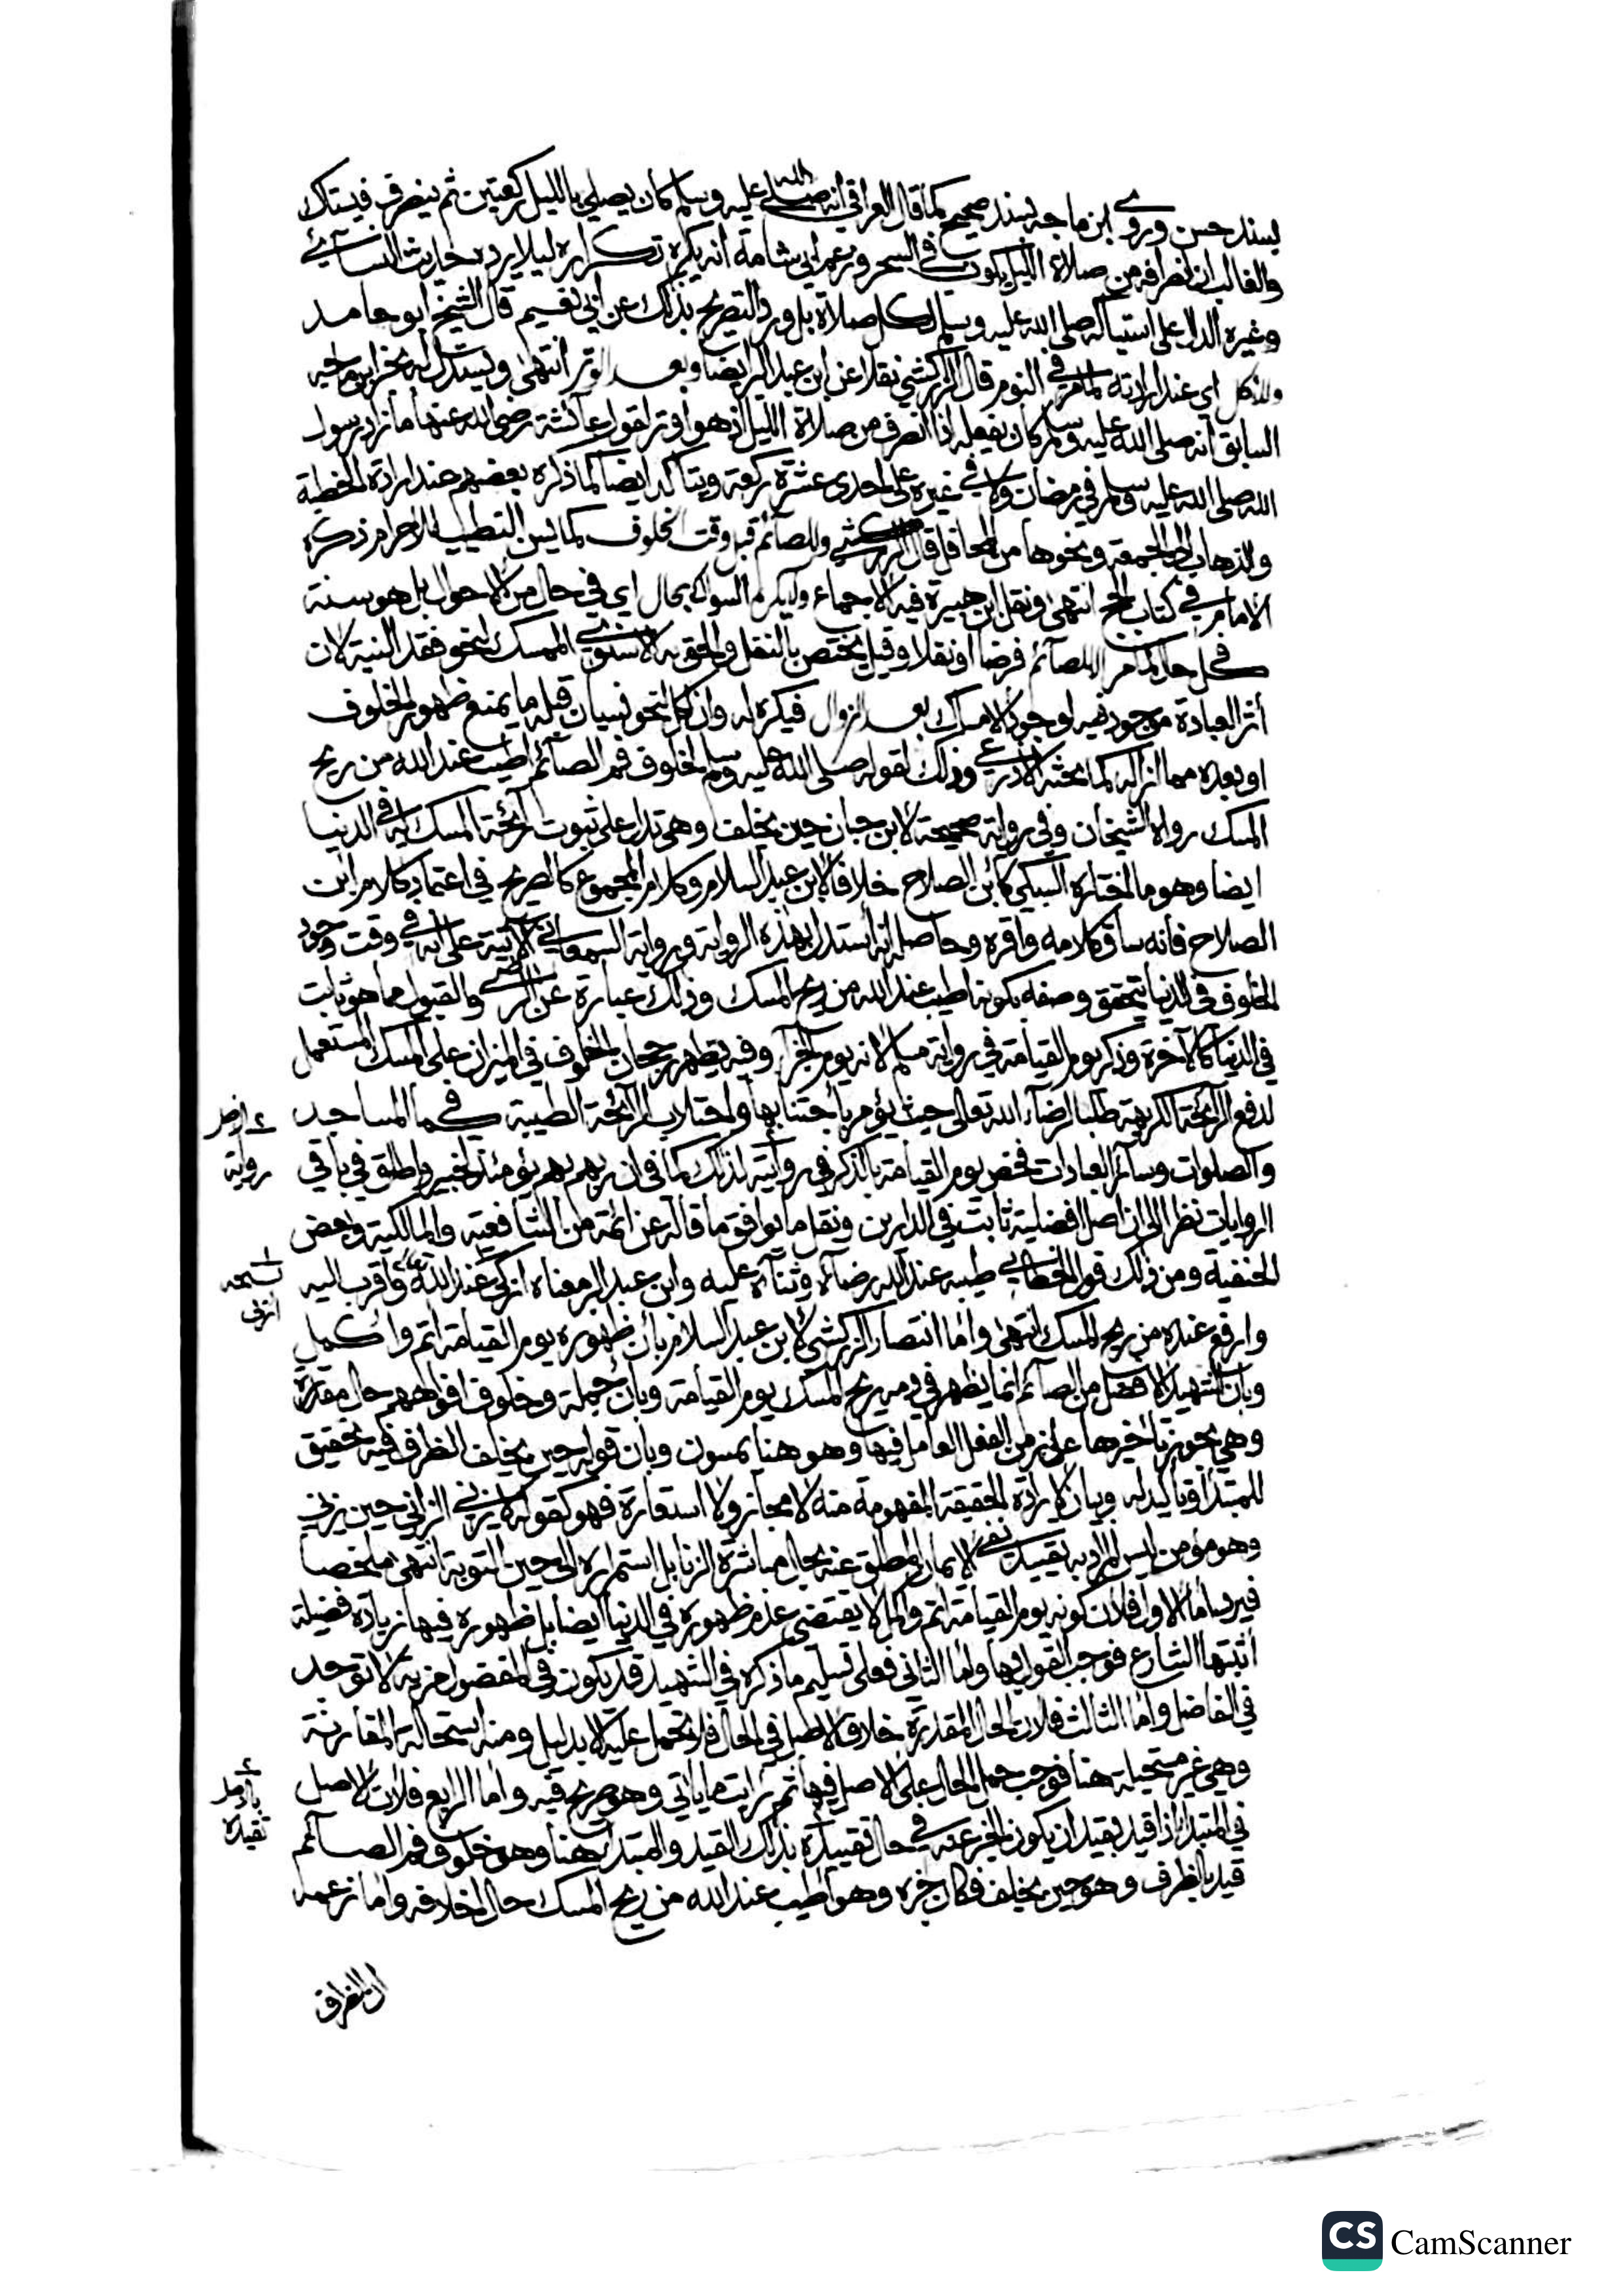 بسند حسن وروى ابن ماجه بسند صحيح كما قال العراقي انه صلى الله عليه وسلم كان يصلي بالليل ركعتين ثم ينصرف فيستاك
والغالب ان انصرافه من صلاة الليل يكون في السحر وزعم ابي شامة انه يكره تكراره ليلا يرده حديث النسآئي
وغيره الدال على استياكه صلى الله عليه وسلم لكل صلاة بل ورد التصريح بذلك عن ابي نعيم قال الشيخ ابو حامد
وللأكل اي عند ارادته كما مر في النوم قال الزركشي نقلا عن ابن عبد البر ايضا وبعد الوتر انتهى ويستدل له بخبر ابن ماجه
السابق انه صلى الله عليه وسلم كان يفعله اذا انصرف من صلاة الليل اذ هو الوتر لقول عآئشة رضي الله عنها ما زاد رسول
الله صلى الله عليه وسلم في رمضان ولا في غيره على احدى عشرة ركعة ويتأكد ايضا كما ذكره بعضهم عند ارادة الخطبة
والذهاب الى الجمعة ونحوها من المحافل قال الزركشي وللصآئم قبل وقت الخلوف كما يسن التطيب للاحرام ذكره
الامام في كتاب الحج انتهى ونقل ابن هبيرة فيه الاجماع ولا يكره السواك بحال اي في حال من الاحوال بل هو سنة
في كل حال كما مر الا للصآئم فرضا او نفلا وقيل يختص بالنفل والحق به الاسنوي الممسك لنحو فقد النية لان
أثر العبادة موجود فيه لوجود الامساك بعد الزوال فيكره له وان أكل لنحو نسيان قبله ما يمنع ظهور الخلوف
او بعده مما ازاله كما بحثه الاذرعي وذلك لقوله صلى الله عليه وسلم لخلوف فم الصآئم اطيب عند الله من ريح
المسك رواه الشيخان وفي رواية صحيحة لابن حبان حين يخلف وهي تدل على ثبوت رآئحة المسك له في الدنيا
ايضا وهو ما اختاره السبكي كابن الصلاح خلافا لابن عبد السلام وكلام المجموع كالصريح في اعتماد كلام ابن
الصلاح فأنه ساق كلامه واقره وحاصله انه استدل بهذه الرواية ورواية السمعاني الآتية على انه في وقت وجود
الخلوف في الدنيا يتحقق وصفه بكونه اطيب عند الله من ريح المسك وذلك عبارة عن الرضى والقبول مما هو ثابت
في الدنيا كالآخرة وذكر يوم القيامة في رواية مسلم لانه يوم الجزآء وفيه يظهر رجحان الخلوف في الميزان على المسك المستعمل
لدفع الرآئحة الكريهة طلبا لرضآء الله تعالى حيث يؤمر باجتنابها واجتلاب الرآئحة الطيبة كما في المساجد
والصلوات وسآئر العبادات فخص يوم القيامة بالذكر في روايته لذلك كما في ان ربهم بهم يومئذ لخبير واطلق في باقي
الروايات نظرا الى ان اصل افضليته ثابت في الدارين ونقل ما يوافق ما قاله عن ائمة من الشافعية والمالكية وبعض
الحنفية ومن ذلك قول الخطابي طيبه عند الله رضآه وثنآه عليه وابن عبد البر معناه ازكى عند الله واقرب اليه
وارفع عنده من ريح المسك انتهى واما انتصار الزركشي لابن عبد السلام بأن ظهوره يوم القيامة اتم واكمل
وبأن الشهيد الافضل من الصآئم انما يظهر في دمه ريح المسك يوم القيامة وبأن جملة وخلوف افواههم حال مقدرة
وهي يجوز تأخيرها عن زمن الفعل العامل فيها وهو هنا يمسون وبأن قوله حين يخلف الظرف فيه تحقيق
للمبتدأ وتأكيد له وبيان لارادة الحقيقة المفهومة منه لا مجاز ولا استعارة فهو كقوله لا يزني الزاني حين يزني
وهو مؤمن ليس المراد به تقييد نفي الايمان المطلق عنه بحال مباشرة الزنا بل استمراره الى حين التوبة انتهى ملخصا
فيرد اما الاول فلأن كونه يوم القيامة اتم واكمل لا يقتضي عدم ظهوره في الدنيا ايضا بل ظهوره فيها زيادة فضيلة
أثبتها الشارع فوجب القول بها واما الثاني فعلى تسليم ما ذكره في الشهيد قد يكون في المفضول مزية لا توجد
في الفاضل واما الثالث فلأن الحال المقدرة خلاف الاصل في الحال فلا تحمل عليه الا بدليل ومنه استحالة المقارنة
وهي غير مستحيلة هنا فوجب حمل الحال على الاصل فيها ثم رايت ما يأتي وهو صريح فيه واما الرابع فلأن الاصل
في المبتدأ اذا قيد بقيد ان يكون الخبر عنه في حال تقييده بذلك القيد والمبتدأ هنا وهو خلوف فم الصآئم
قيد بالظرف وهو حين يخلف فكان خبره وهو اطيب عند الله من ريح المسك حال اخلافه واما زعمه
رواية
نسخه
تقيده
ان الظرف
CamScanner